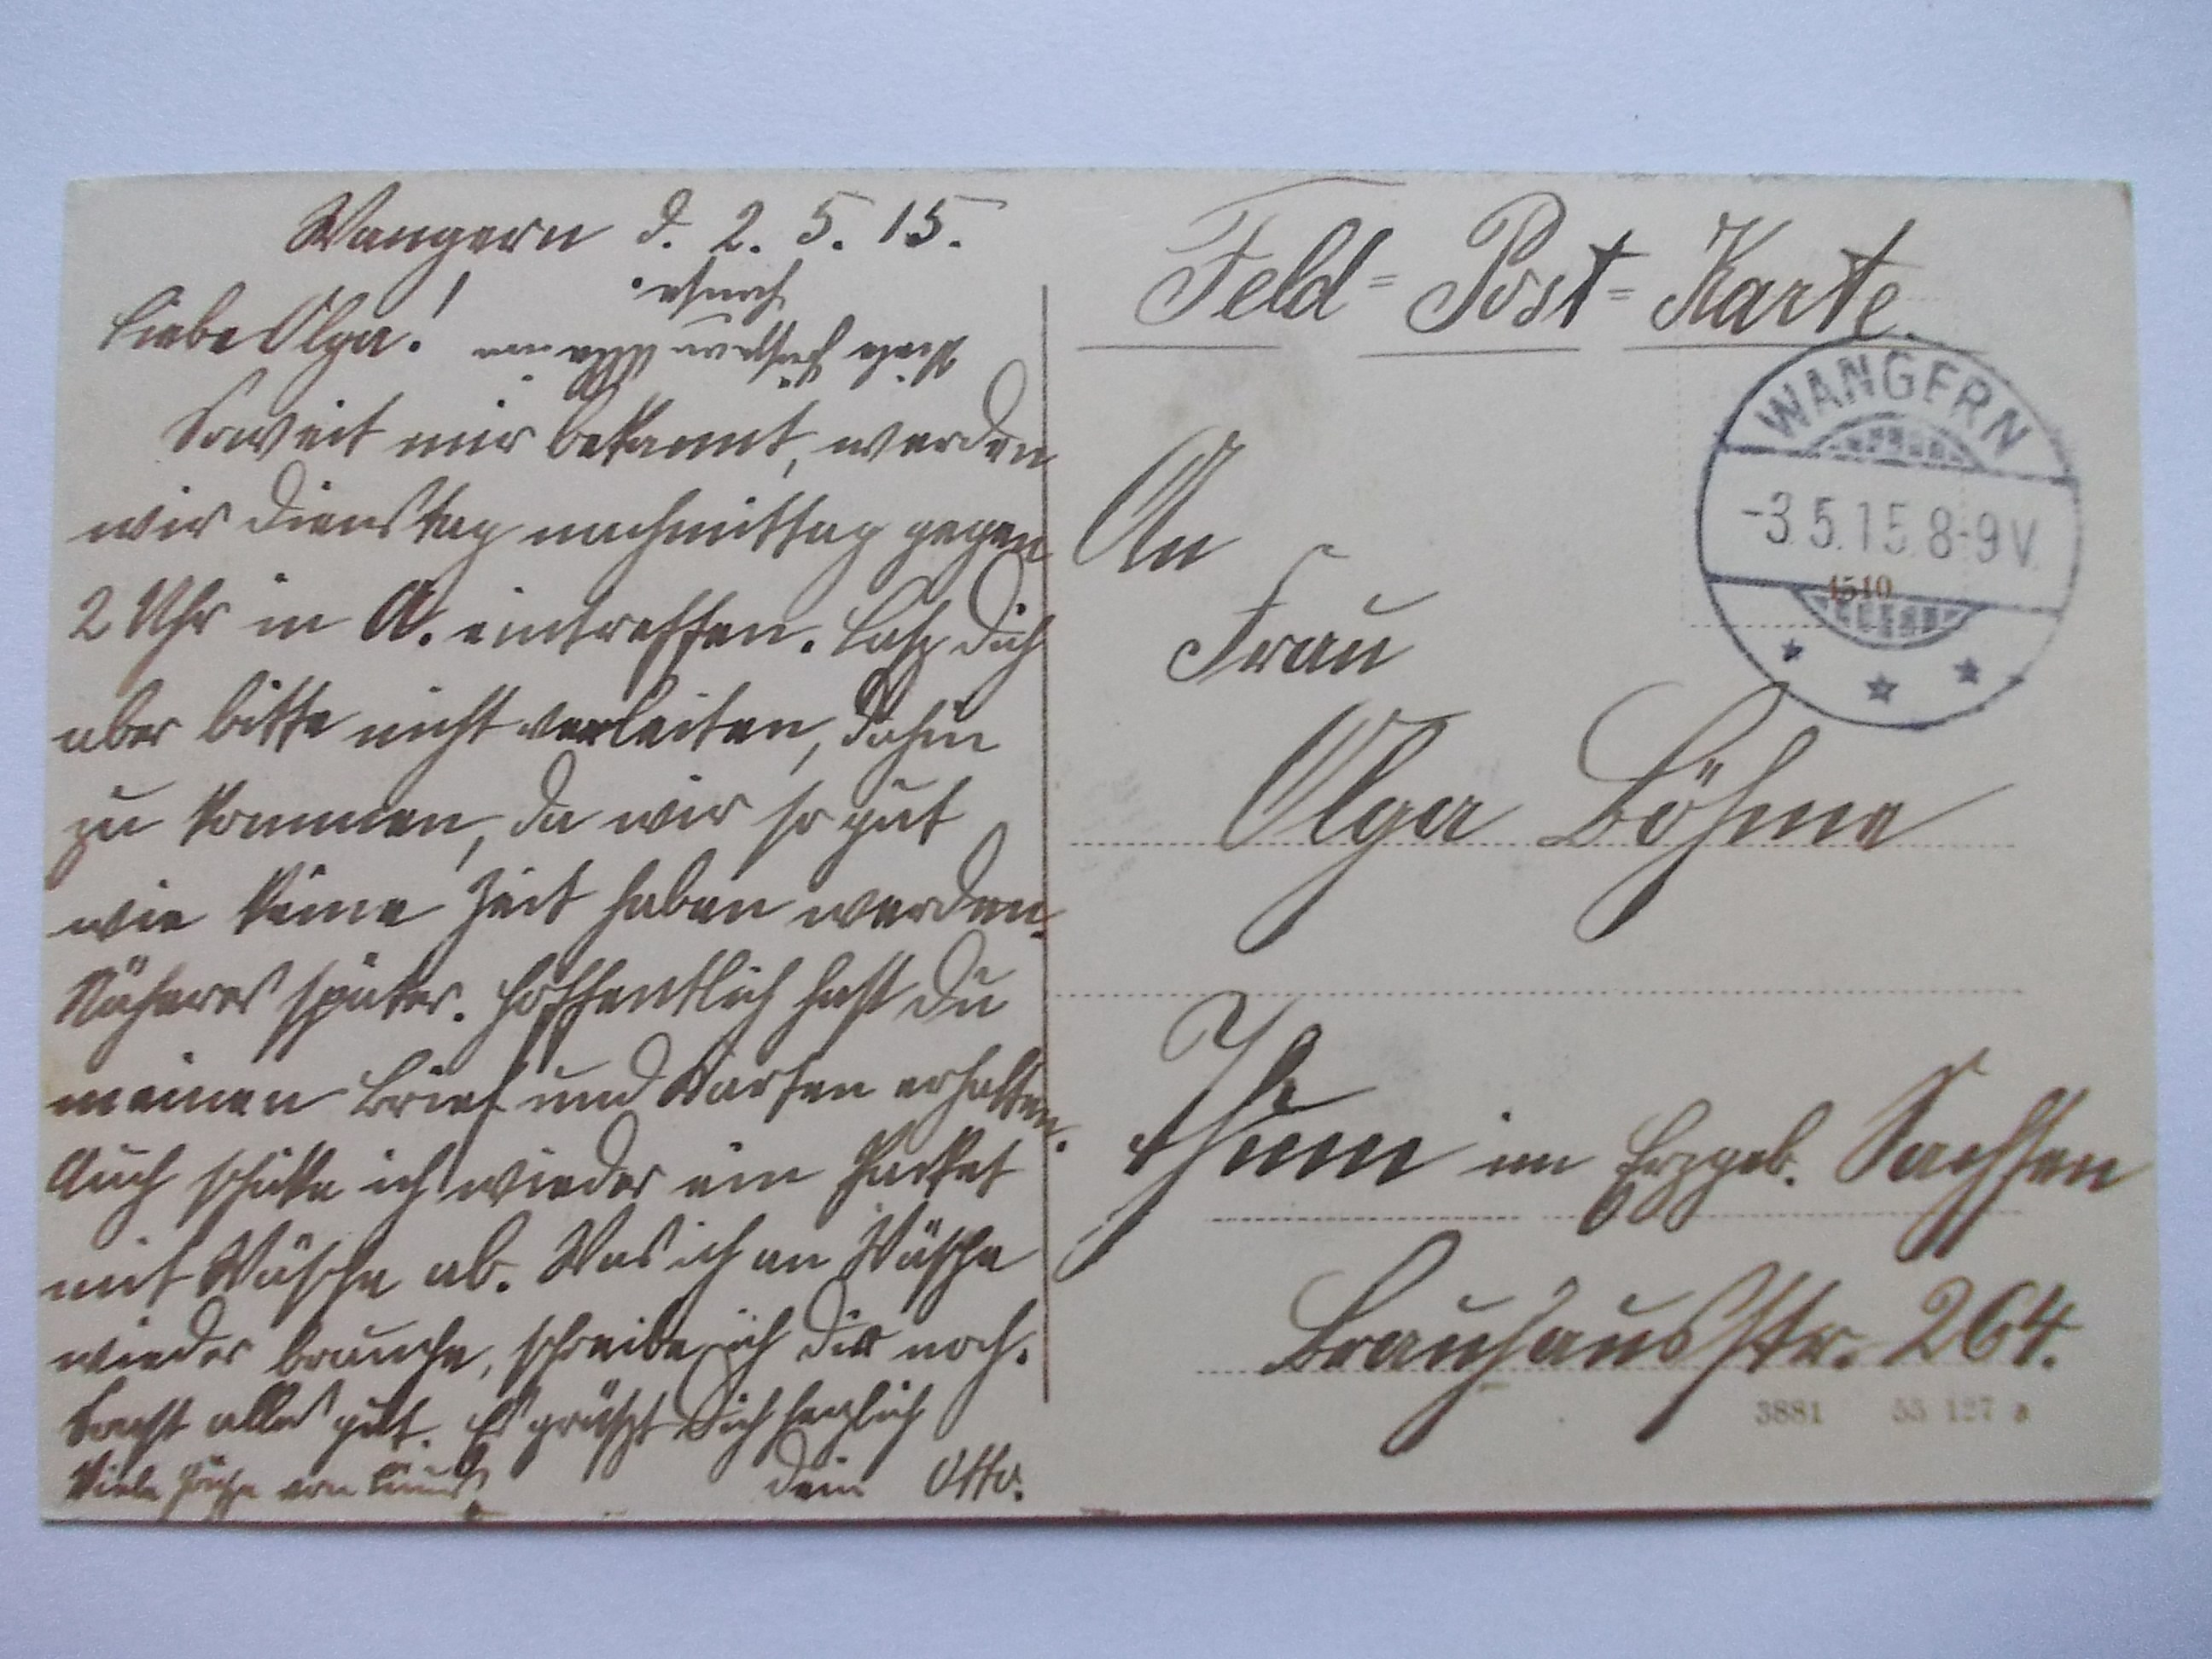 Wangern d. 2. 5. 15.
Liebe Olga!
Soweit mir bekannt, werden
wir Dienstag nachmittag gegen
2 Uhr in A. eintreffen. Lass dich
aber bitte nicht verleiten, dahin
zu kommen, da wir so gut
wie keine Zeit haben werden.
Näheres später. Hoffentlich hast Du
meinen Brief und Karten erhalten.
Auch schicke ich wieder ein Packet
mit Wäsche ab. Was ich an Wäsche
wieder brauche, schreibe ich dir noch.
alles gut. Es grüsst Dich herzlich
Dein Otto.
Viele Grüsse von
Feld-Post-Karte.
WANGERN
-3.5.15.8-9V.
1510
An
Frau
Olga Böhme
Thum im Erzgeb. Sachsen
Brauhausstr. 264.
3881 55 127 a